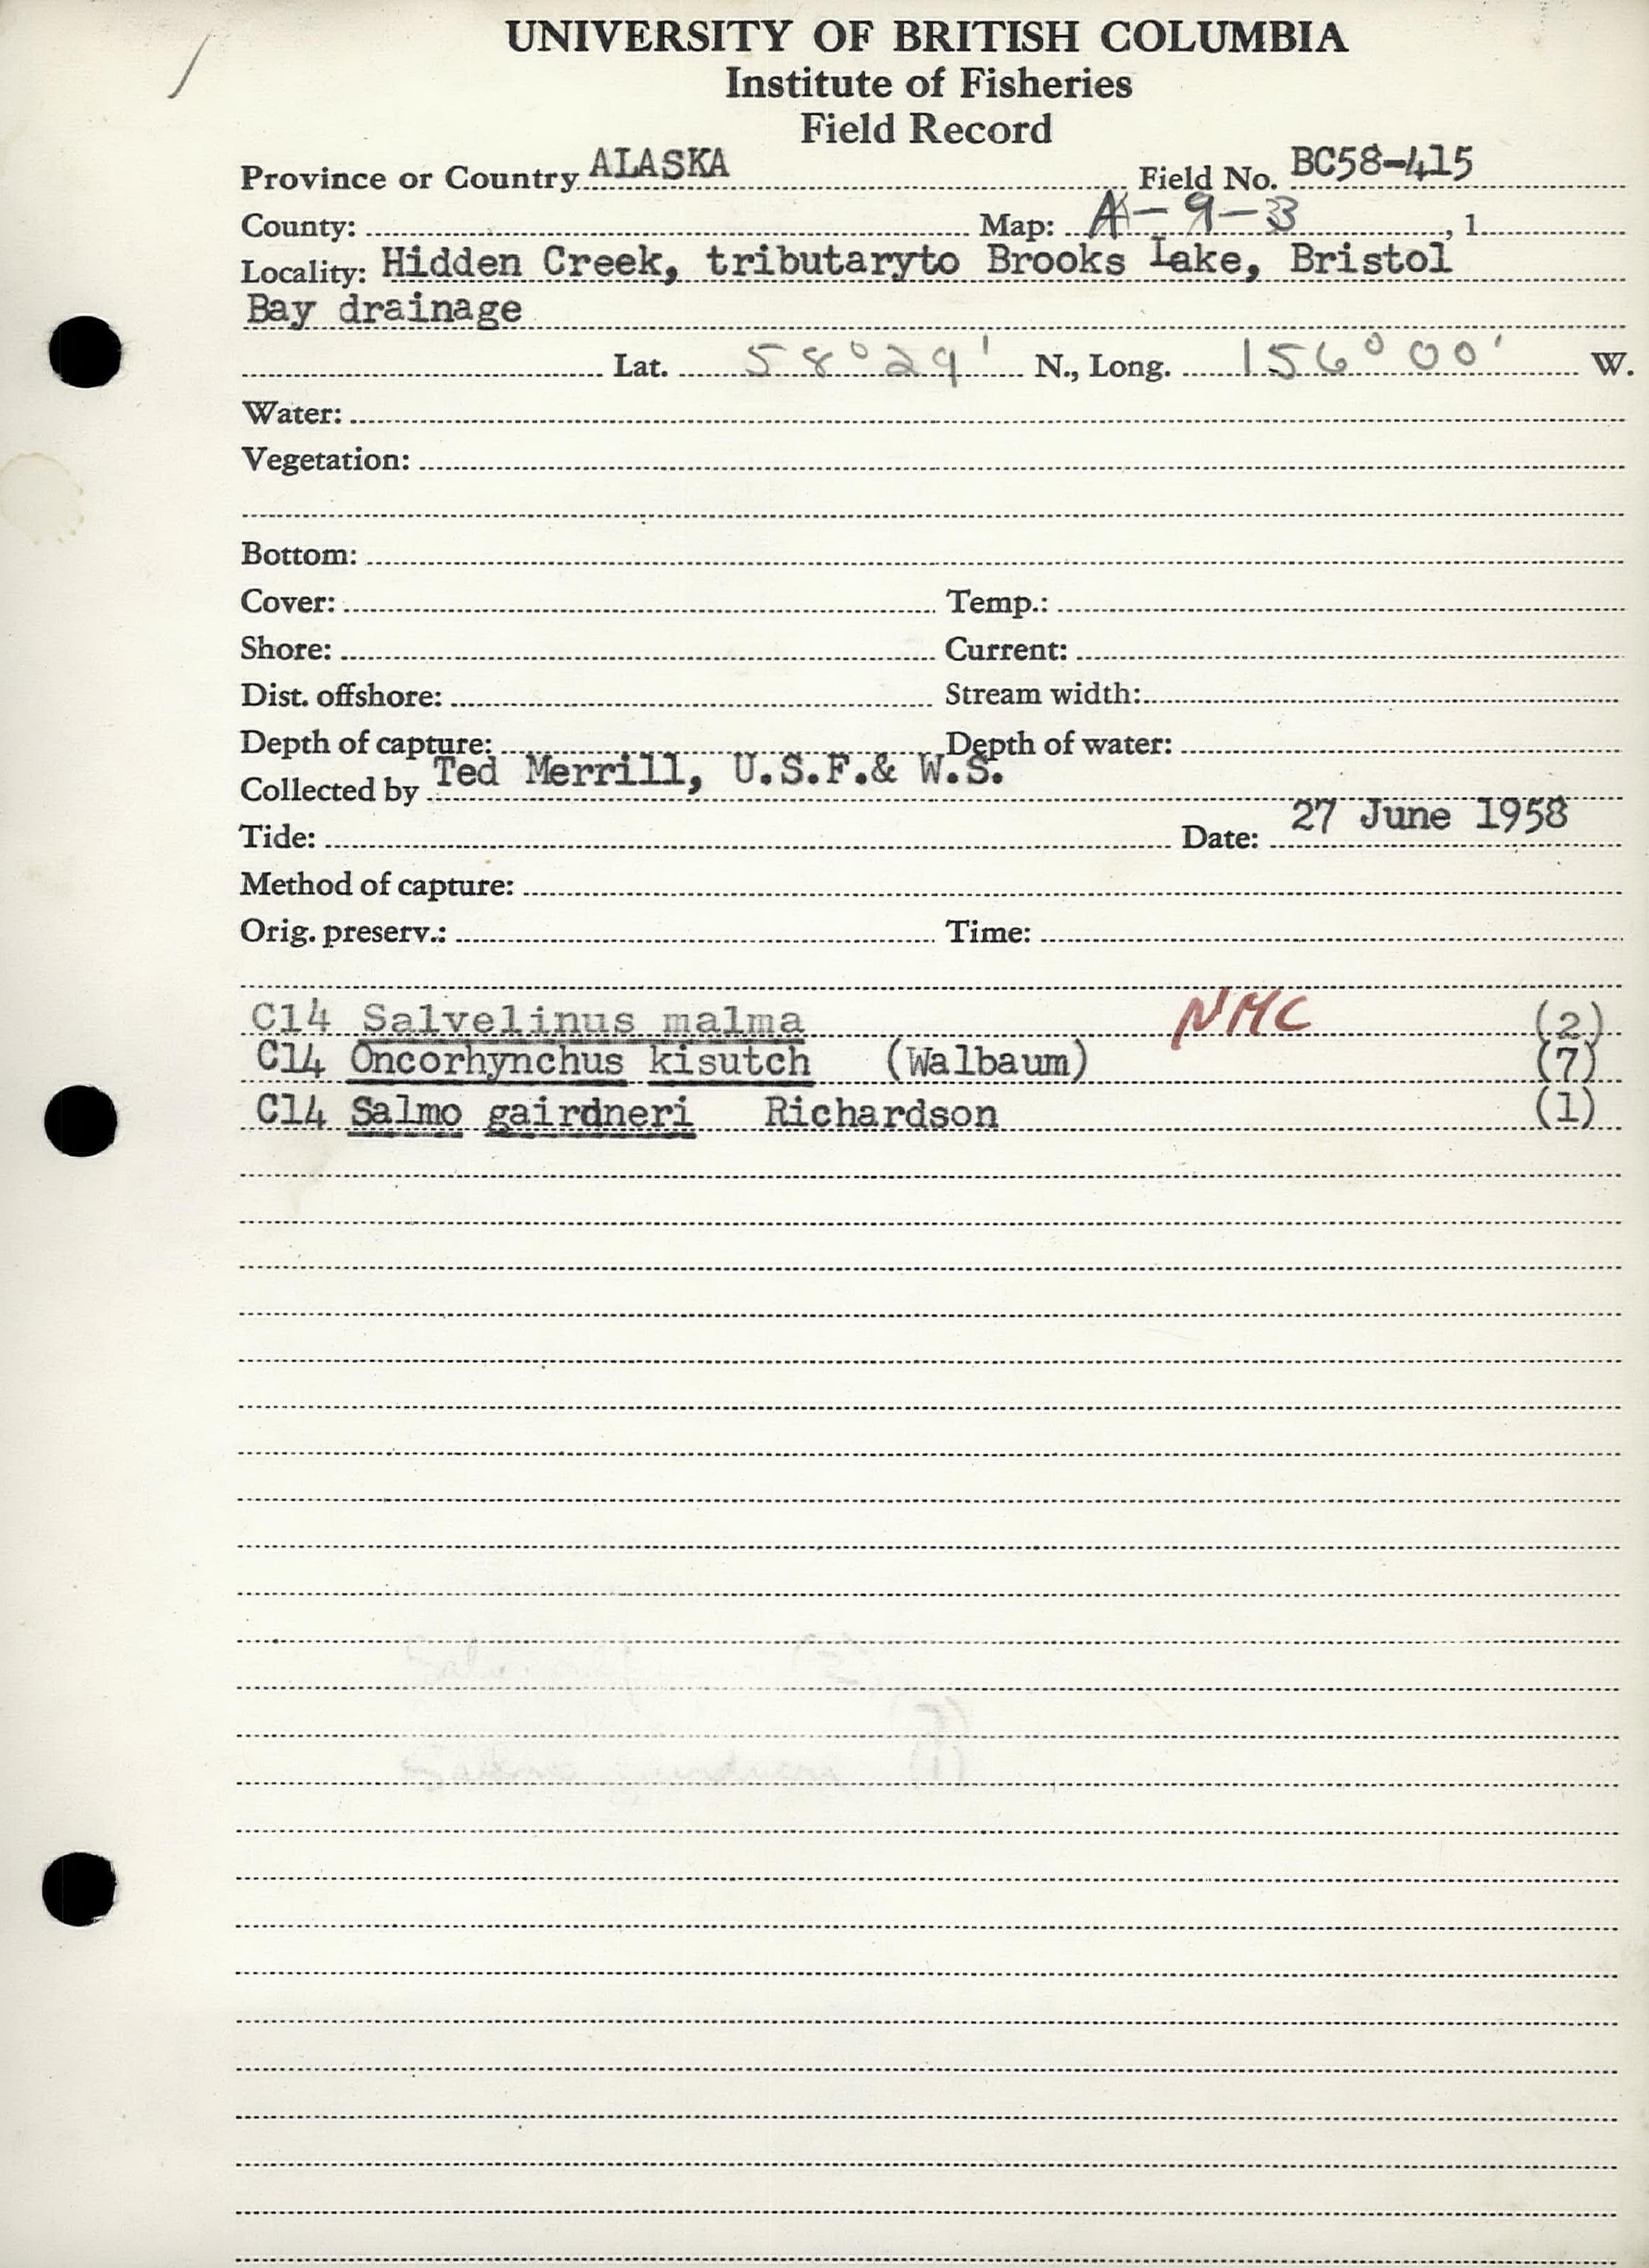 UNIVERSITY OF BRITISH COLUMBIA
Institute of Fisheries
Field Record
Province or Country ALASKA Field No. BC58-415
County: Map: A-9-3, 1
Locality: Hidden Creek, tributaryto Brooks Lake, Bristol
Bay drainage
Lat. 58°29' N., Long. 156°00' W.
Water:
Vegetation:
Bottom:
Cover: Temp.:
Shore: Current:
Dist. offshore: Stream width:
Depth of capture: Depth of water:
Collected by Ted Merrill, U.S.F.& W.S.
Tide: Date: 27 June 1958
Method of capture:
Orig. preserv.: Time:
C14 Salvelinus malma NMC (2)
C14 Oncorhynchus kisutch (Walbaum) (7)
C14 Salmo gairdneri Richardson (1)